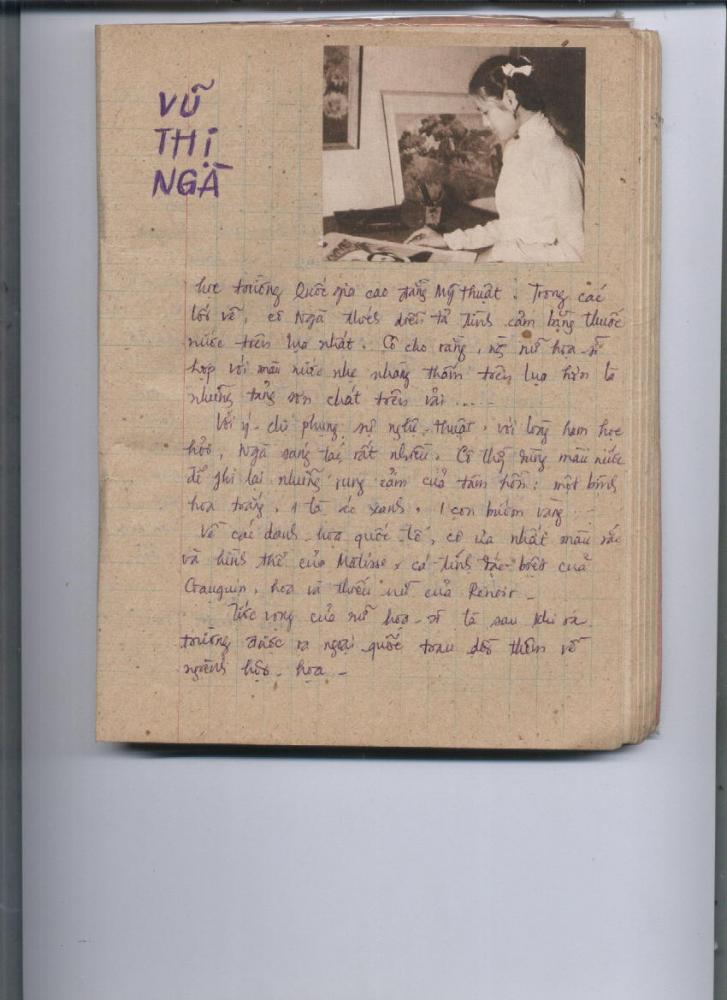 VŨ
THỊ
NGÀ
học trường Quốc gia cao đẳng Mỹ thuật. Trong các
lối vẽ, cô Ngà thích diễn tả tình cảm bằng thuốc
nước trên lụa nhất. Cô cho rằng, nữ họa-sĩ
hợp với màu nước nhẹ nhàng thấm trên lụa hơn là
những tảng sơn chất trên vải ....
Với ý-chí phụng sự nghệ-thuật, với lòng ham học
hỏi, Ngà sáng tác rất nhiều. Cô thường dùng màu nước
để ghi lại những rung cảm của tâm hồn: một bình
hoa trắng, 1 tà áo xanh, 1 con bướm vàng ...
Về các danh-họa quốc tế, cô ưa nhất màu sắc
và hình thể của Matisse, cá tính đặc-biệt của
Gauguin, hoa và thiếu nữ của Renoir -
Ước vọng của nữ họa-sĩ là sau khi ra
trường được ra ngoại quốc trau dồi thêm về
ngành hội-họa -